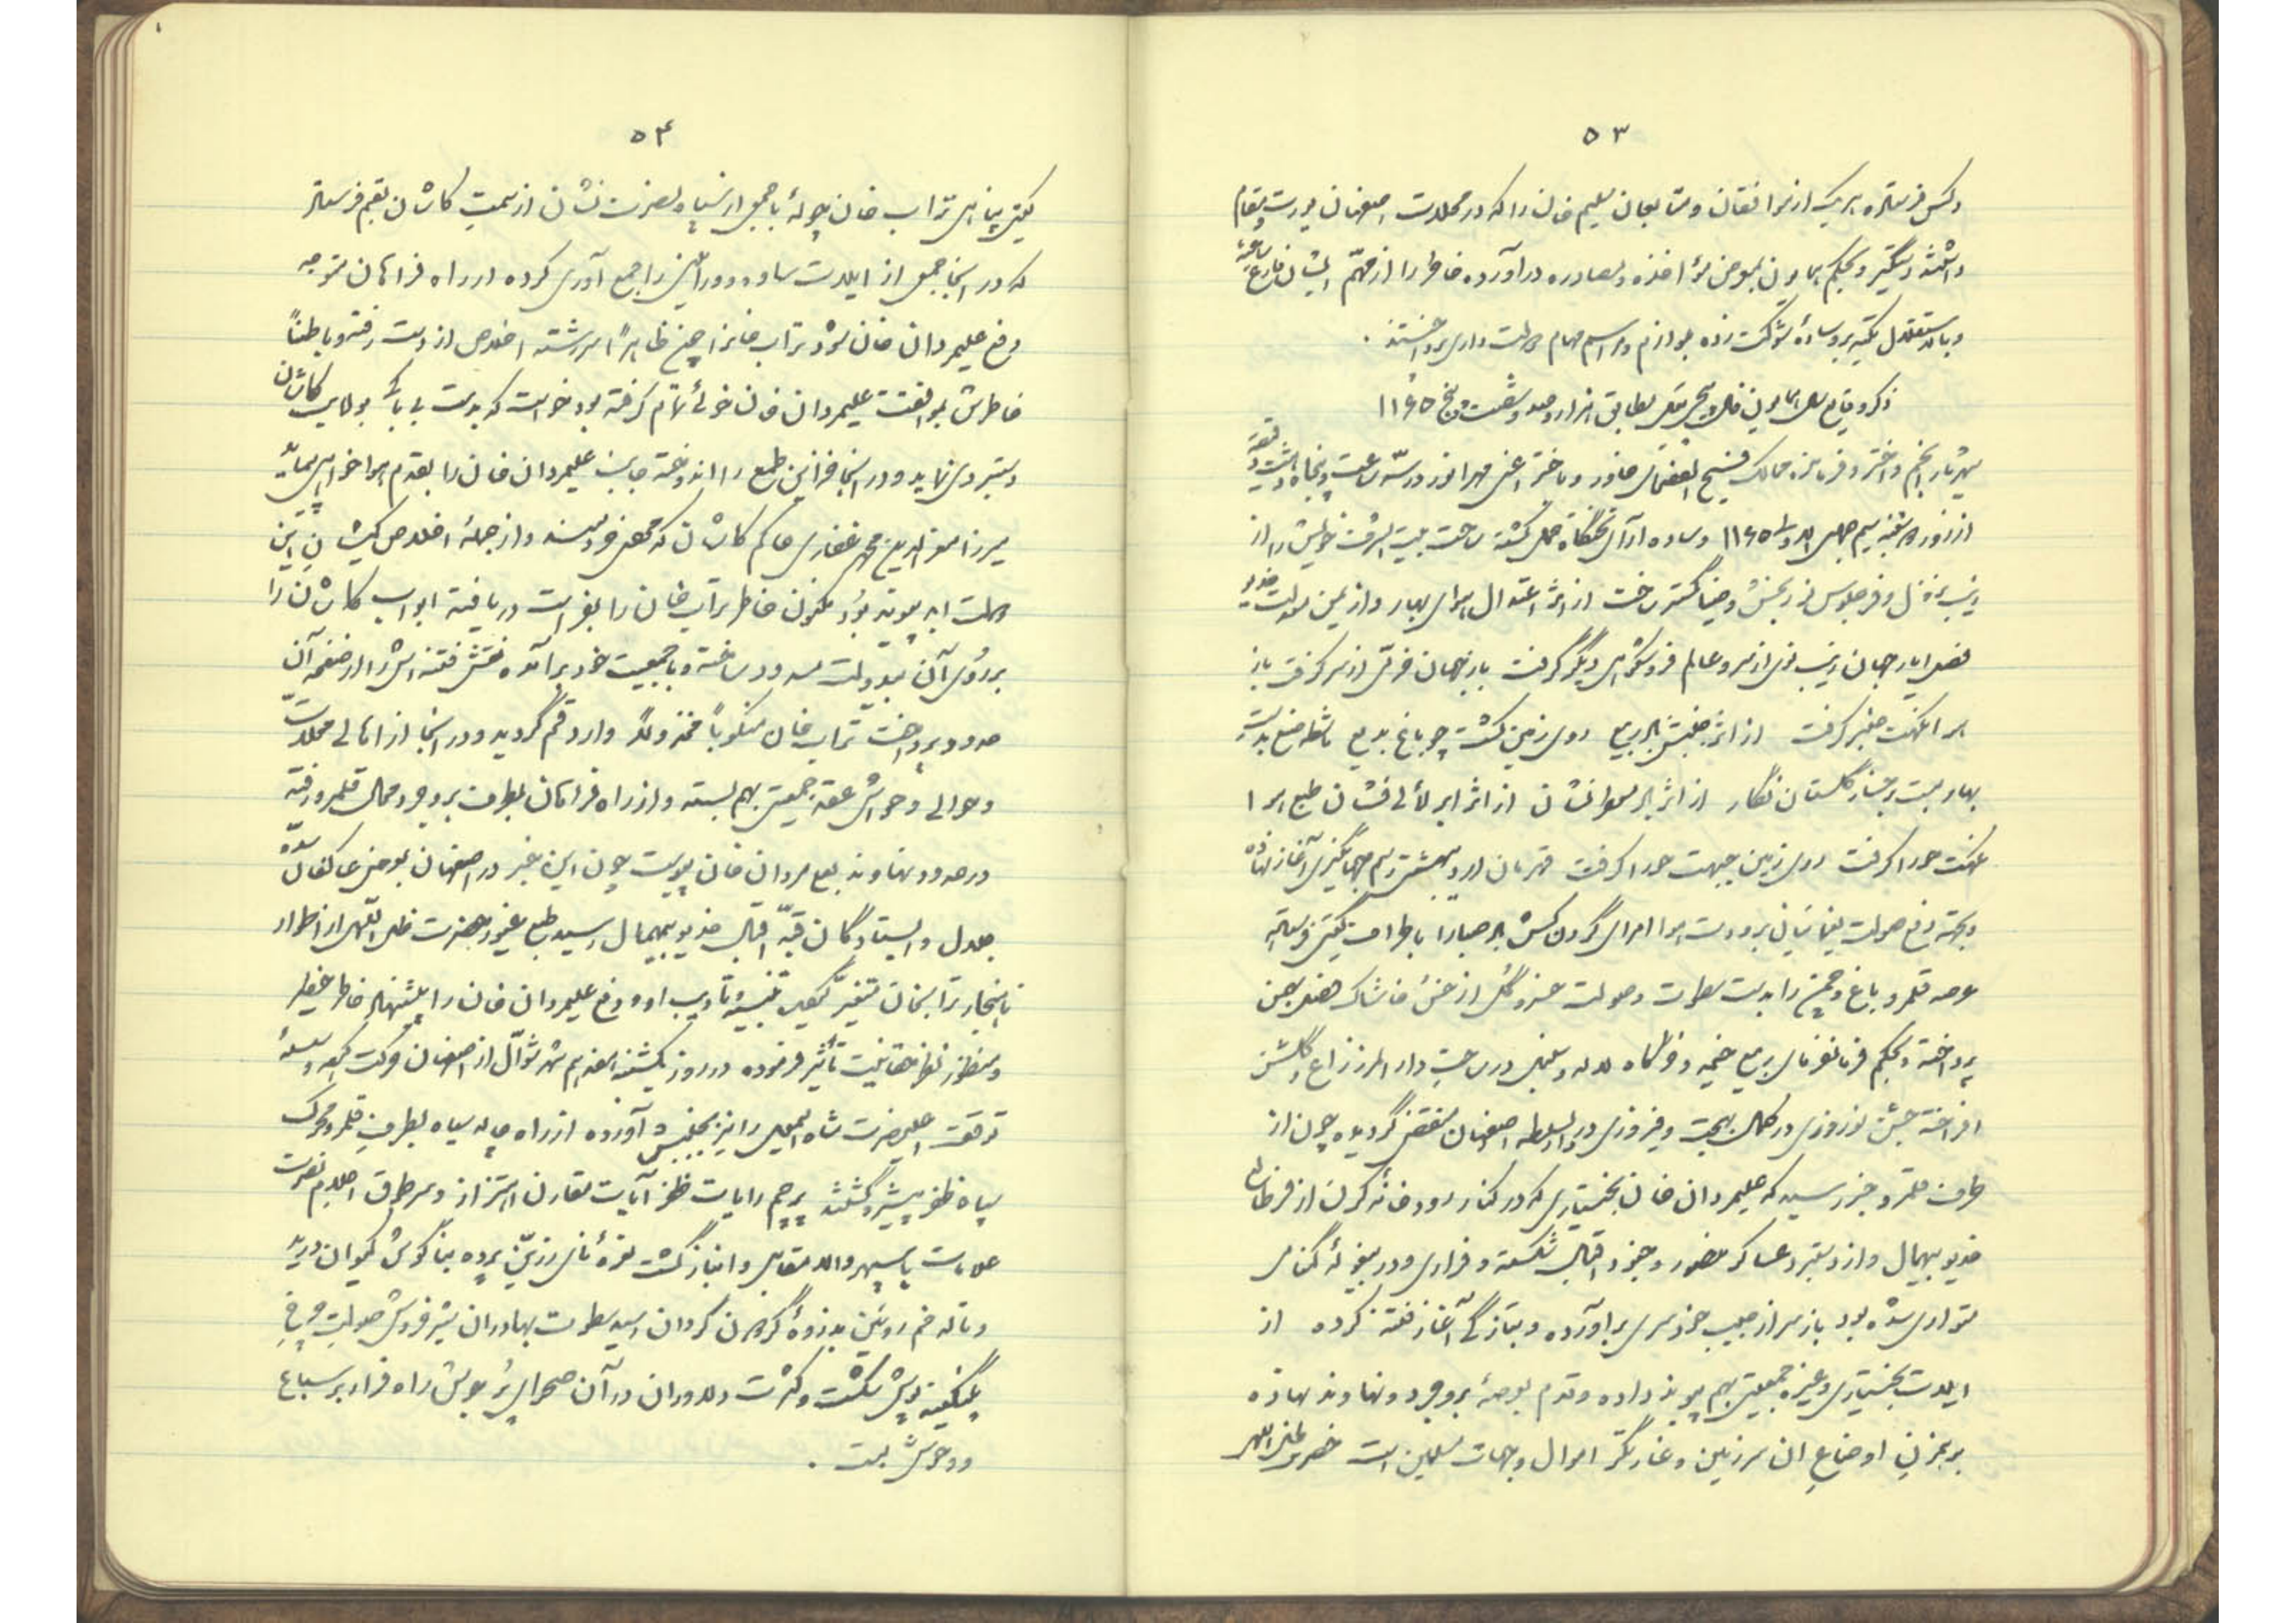 ۵۳
و کس فرستاده هر یک از موافقان و متابعان سلیم خان را که در محلات اصفهان یورت و مقام
داشتند دستگیر و بحکم همایون بمعرض مؤاخذه و مصادره درآورده خاطر را از مهمّ ایشان فارغ ساخته
و بالاستقلال تکیه بر وساده شوکت زده بلوازم و مراسم مهام دولت داری پرداختند .
ذکر وقایع سال همایون فال مطابق هزار و صد و شصت و پنج ۱۱۶۵
شهریار انجم و اختر و فرمانده ممالک فسیح الفضای خاور و باختر اعنی مهر انور در سه ساعت و پنجاه و هشت دقیقه
از روز شنبه سیم جمادی الاولی ۱۱۶۵ وساده آرای تختگاه حمل گشته ساحت بیت الشرف خویش را از
زیب نزول و فر جلوس نوربخش و ضیاگستر ساخت از اثر اعتدال هوای بهار و از یمن دولت خدیو
جهان زیب نوی از سر و عالم فر و شکوهی دیگر گرفت باز جهان خرمی از سر گرفت باز
هوا نکهت عنبر گرفت از اثر جنبش ابر ربیع روی زمین گشت چو باغ بدیع مشاطه صنع بدست
بهار بست بر رخسار گلستان نگار از اثر ابر از اثر ابر لآلی فشان طبع هوا
نکهت حورا گرفت روی زمین جبهت حورا گرفت قهرمان اردیبهشت رسم جهانگیری آغاز نهاده
و بجهة دفع صولت یغمائیان برودت هوا امرای گردن کش صبا را باطراف تعیین فرستاده
عرصه قلمرو باغ و چمن را بدست سطوت و صولت خسرو گل از خس و خاشاک بهمن
پرداخته و بحکم فرمانفرمای ربیع خیمه و خرگاه لاله و سنبل در ساحت دارالمرز راغ و گلشن
افراخته جشن نوروزی در کمال بهجت و فیروزی در دارالسلطنه اصفهان منقضی گردیده چون از
طرف قلمرو خبر رسید که علیمردان خان بختیاری که در کنار رودخانه کرن از فر طالع
خدیو بیهمال و از دستبرد عساکر منصور و جنود اقبال شکسته و فراری و در بیغوله گمنامی
متواری شده بود باز سر از جیب خودسری برآورده و بتازگی آغاز فتنه کرده از
ایلات بختیاری و غیره جمعیتی بهم پیوند داده و قدم بعرصه بروجرد و نهاوند نهاده
برهمزن اوضاع ان سرزمین و غارتگر اموال و جهات مسلمین است حضرت ظل اللهی
۵۴
تراب خان چوله با جمعی از سپاه نصرت نشان از سمت کاشان بقم فرستاده
که در انجا جمعی از ایلات ساوه و ورامین را جمع آوری کرده از راه فراهان متوجه
دفع علیمردان خان شود تراب خان را چون ظاهراً سررشته اخلاص از دست رفته و باطناً
خاطرش بموافقت علیمردان خان خوئی تمام گرفته بود خواست که بدست بی باکی بولایت کاشان
دستبردی نماید و در انجا خزاین طمع را اندوخته جانب علیمردان خان را بقدم هواخواهی پیماید
میرزا معزالدین محمد غفاری حاکم کاشان که و از جمله اخلاص کیشان این
دولت ابد پیوند بود مکنون خاطر تراب خان را بفراست دریافته ابواب کاشان را
بر روی آن بیدولت مسدود ساخته و با جمعیت خود برآمده نقش فتنه اش را از صفحه آن
حدود پرداخت تراب خان منکوباً مخذولاً وارد قم گردید و در انجا از اهالی محلات
و حوالی و حواشی عقد جمعیتی بهم بسته و از راه فراهان بطرف بروجرد و محال قلمرو رفته
در حدود نهاوند بعلیمردان خان پیوست چون این خبر در اصفهان بعرض عاکفان سده
جلال و ایستادگان قبّه اقبال خدیو بیهمال رسید طبع غیور حضرت ظل اللهی از اطوار
ناهنجار ترابخان متغیر گردید تنبیه و تأدیب او و دفع علیمردان خان را پیشنهاد خاطر خطیر
و منظور نظر حقانیت تأثیر فرموده در روز یکشنبه هفدهم شهر شوّال از اصفهان حرکت کرده و سلسله
توقف اعلیحضرت شاه اسمعیل را نیز بجنبش آورده از راه چاله سیاه بطرف قلمرو محرک
سپاه ظفر پیشرو گشتند پرچم رایات ظفر آیات مقارن اهتزاز و سر طوق اعلام نصرت
علامات با سپهر والا مقابل و انباز گشت نعره نای زرین پرده بناگوش کیوان درید
و ناله خم رویین بذروه گردون گردان رسید سطوت بهادران شیر خروش صولت چرخ
شکست و کثرت دلاوران در آن صحرای پر بویش راه فرار بر سباع
و وحوش بست .